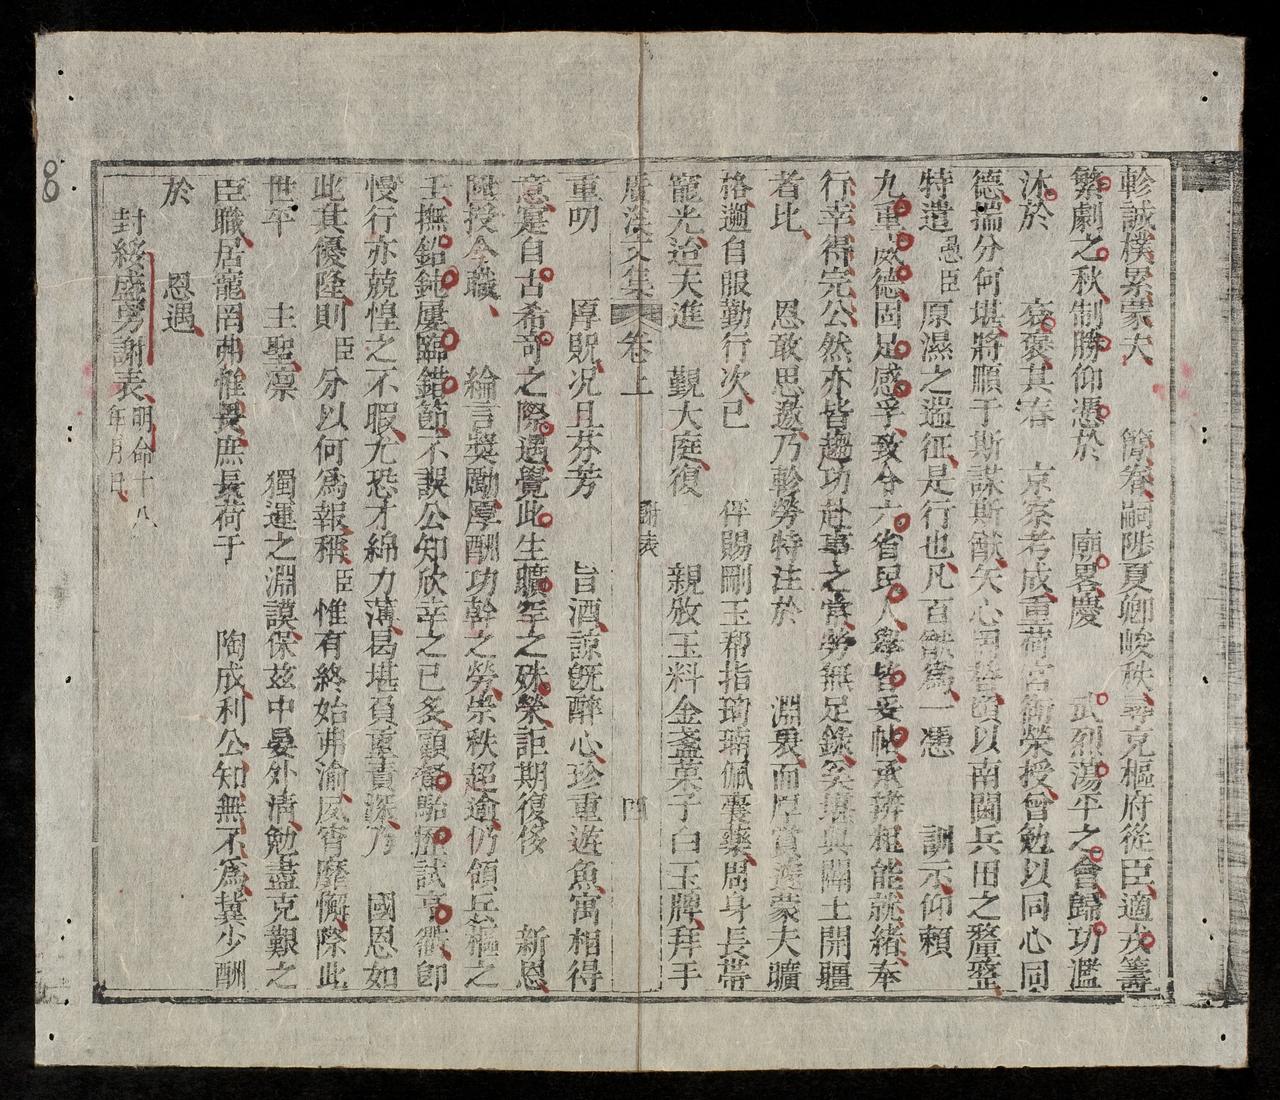 軫誠樸累蒙大　簡眷嗣陟夏卿峻秩尋克樞府從臣適戎籌
繁劇之秋制勝仰憑於　廟畧慶　武烈蕩平之會歸功濫
沐於　袞褒其春　京察考成重荷宮銜榮授曾勉以同心同
德揣分何堪將順于斯謀斯猷矢心同誓頃以南圻兵田之釐整
特遣愚臣原濕之遄征是行也凡百猷為一憑　訓示仰賴
九重威德固足感孚致令六省民人舉皆妥帖承辨粗能就緒奉
行幸得完公然亦皆趨功赴事之常勞無足錄矣堪與闢土開疆
者比　恩敢思邀乃軫勞特注於　淵衷而厚賞遂蒙夫曠
格遡自服勤行次已　伻賜剛玉帮指珣瑀佩囊藥周身長帶
寵光迨夫進　覲大庭復　親攽玉料金盞菓子白玉牌拜手
廣溪文集　卷上　謝表　四
重叨　厚貺况且芬芳　旨酒諒旣醉心珍重遊魚寓相得
意寔自古希奇之際遇覺此生曠罕之殊榮詎期復俊　新恩
陞授今職　綸言獎勵厚酬功幹之勞崇秩超逾仍領兵樞之
壬撫鉛鈍屢臨錯節不誤公知欣幸之已多顧督駘歷試亨衢卽
慢行亦兢惶之不暇尤恐才綿力薄曷堪負重責深乃　國恩如
此其優隆則臣分以何為報稱臣惟有終始弗渝夙宵靡懈際此
世平　主聖凛　獨運之淵謨保玆中晏外清勉盡克艱之
臣職居寵罔弗惟畏庶長荷于　陶成利公知無不為冀少酬
於　恩遇
封終盛男謝表明命十八年月日